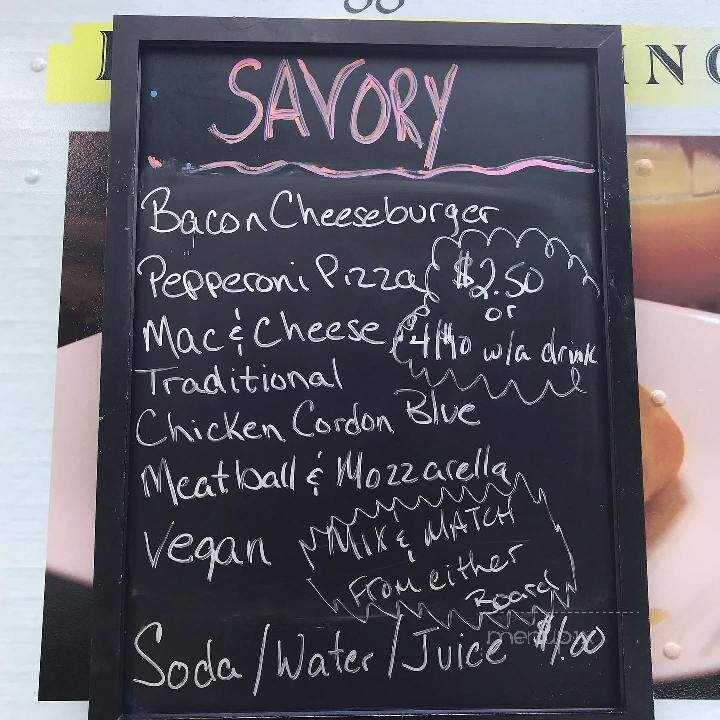 SAVORY
Bacon Cheeseburger
Pepperoni Pizza $2.50
or
Mac & Cheese 4/$10 w/a drink
Traditional
Chicken Cordon Blue
Meatball & Mozzarella
Vegan MIX & MATCH
From either
Board
Soda/Water/Juice $1.00